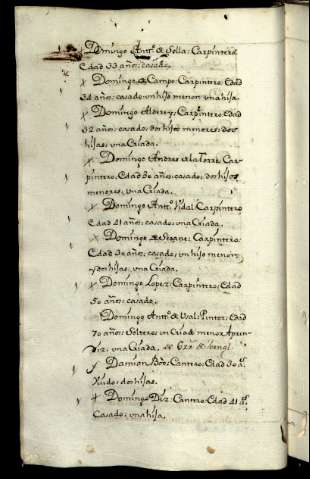 Domingo Antº. de Solla: Carpintero
Edad 33 años: casado.
Domingo de Campo: Carpintero: Edad
34 años: casado: un hijo menor: una hija
Domingo Carpintro: Edad
32 años: casado: dos hijos menores: dos
hijas: una Criada.
Domingo Andres Car-
pintero: Edad 30 años: casado: dos hijos
menores: una Criada.
Domingo Antº. Vidal: Carpintero
Edad 41 años: casado: una Criada.
Domingo de Seoane: Carpintero:
Edad años: casado: un hijo menor
y dos hijas: una Criada.
Domingo Lopez: Carpintero: Edad
50 años: casado.
Domingo Antº. de Pintor: Edad
70 años: Soltero: un Criado menor Apren-
diz: una Criada,
Damian Cantero: Edad
Viudo: dos hijas.
Domingo Diz: Cantero: Edad
Casado: una hija.